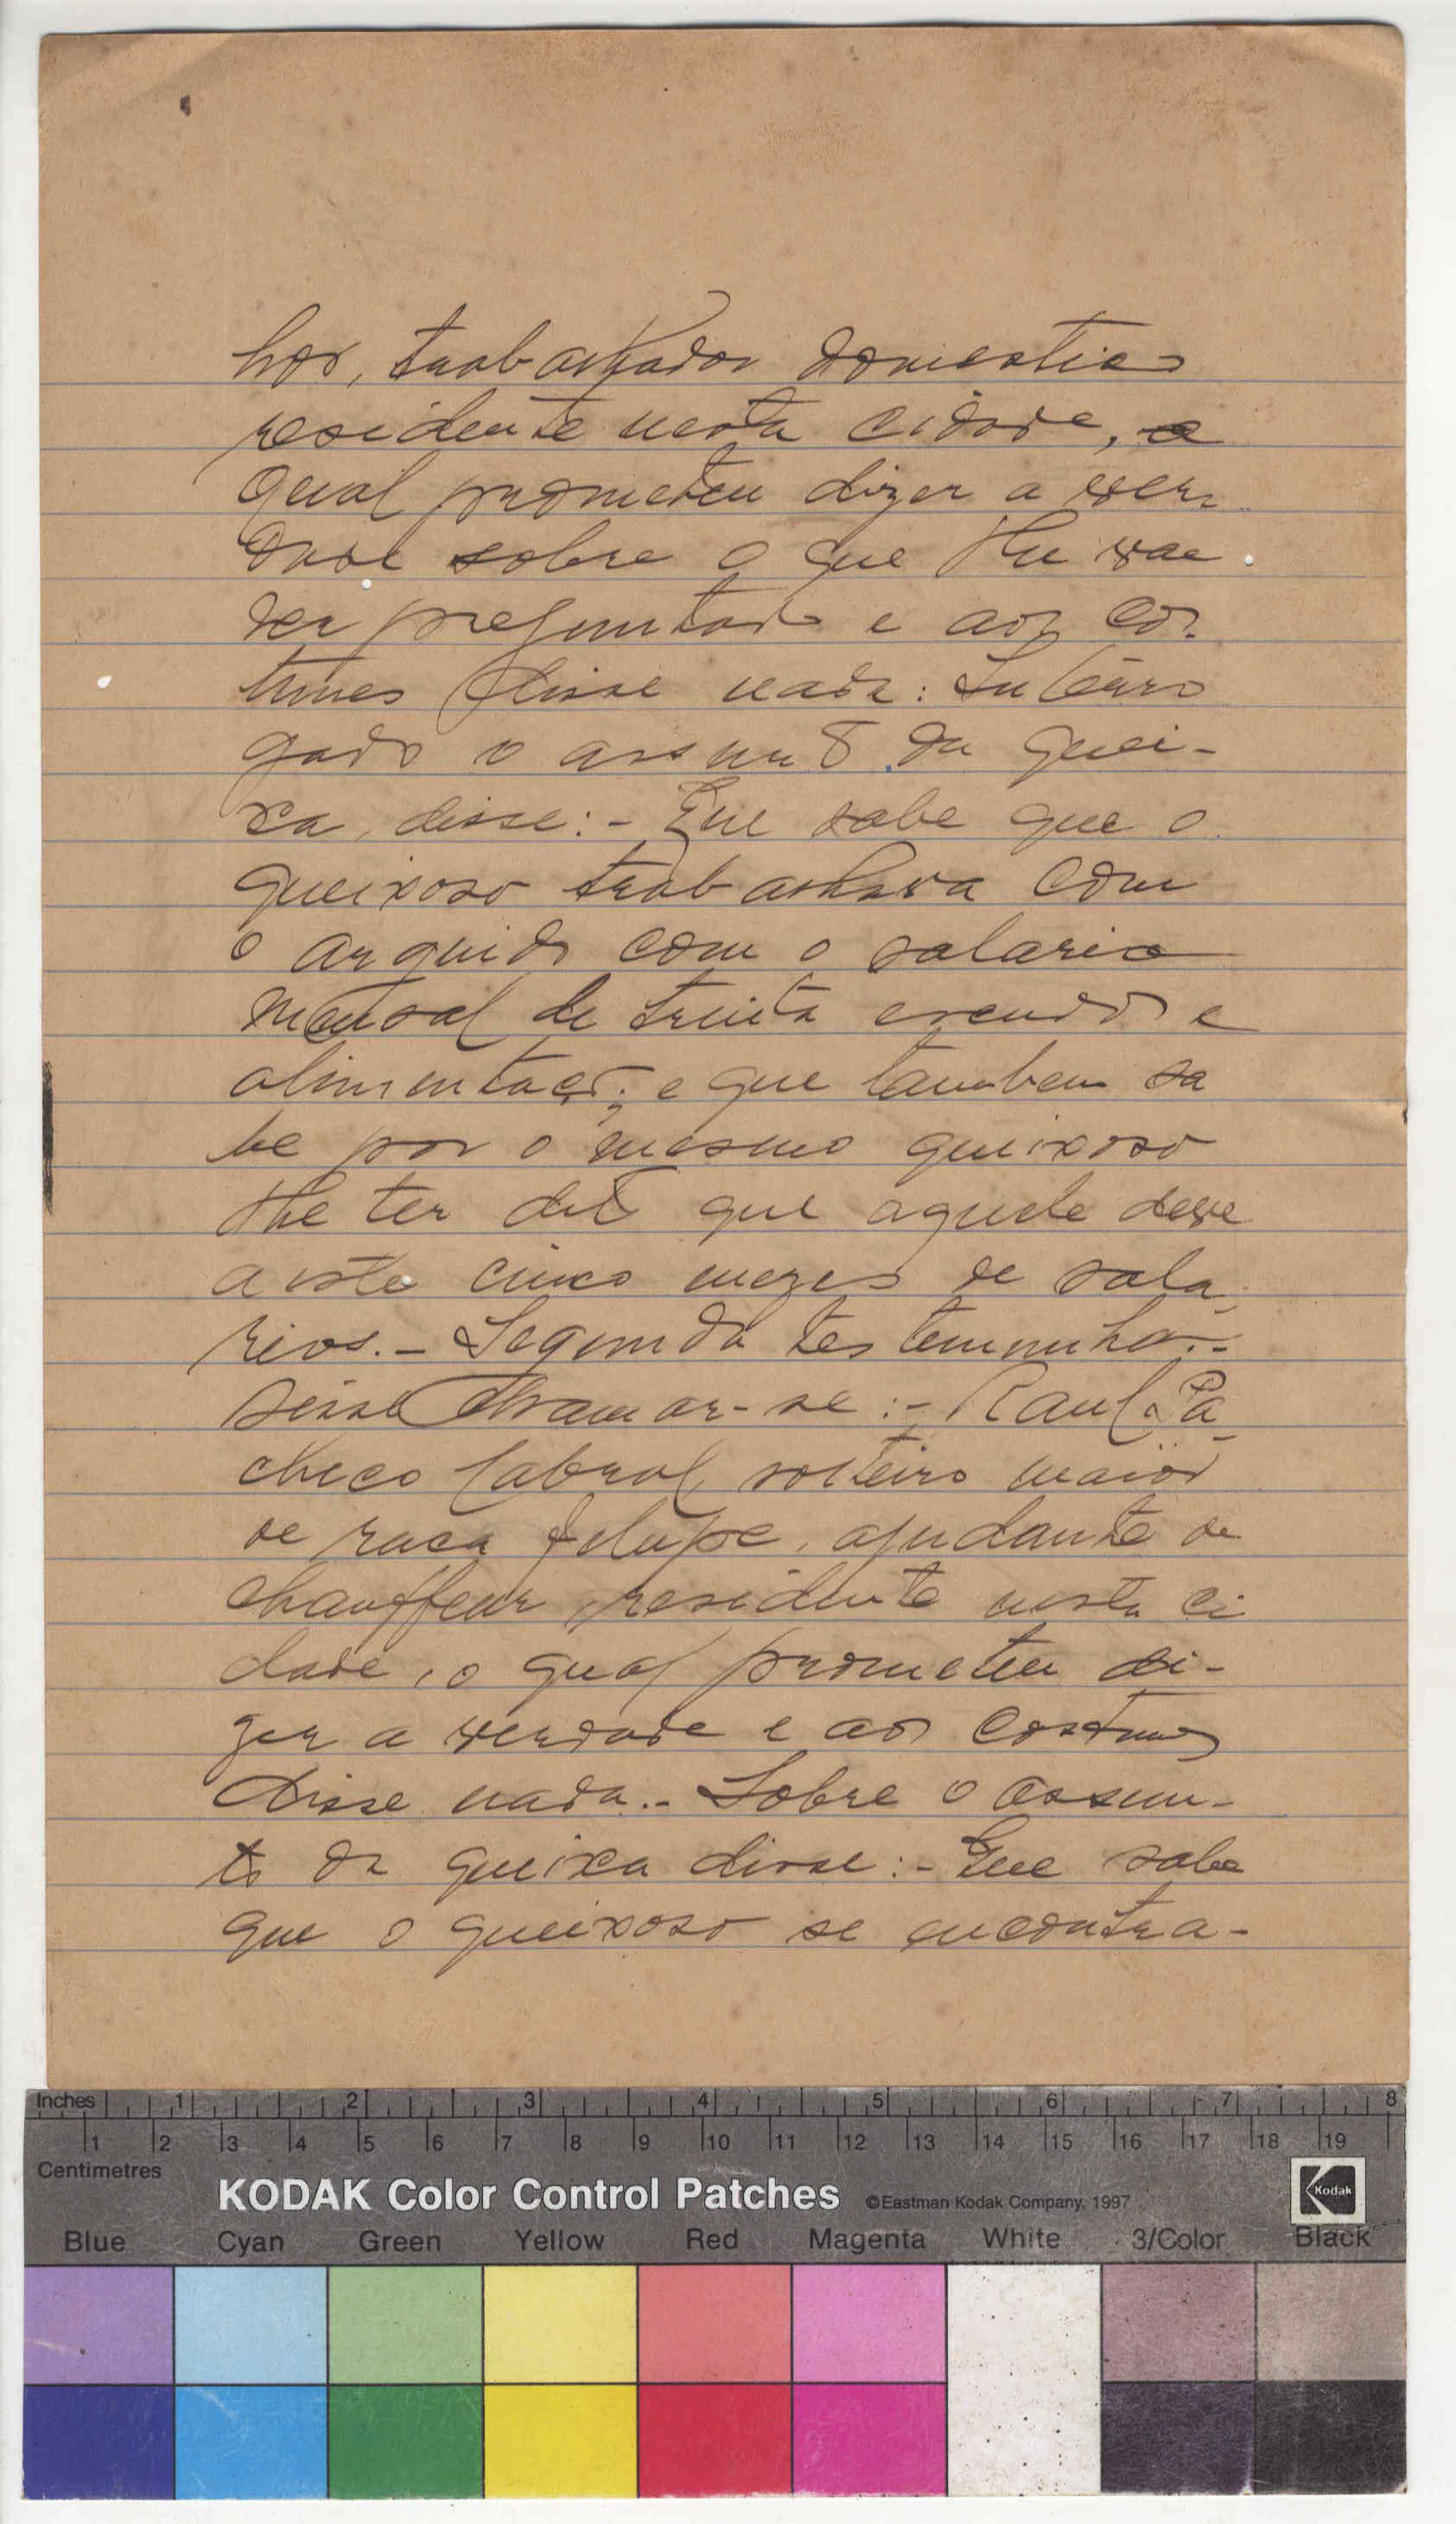 hos, trabalhador domestico
residente nesta cidade, o
qual prometeu dizer a ver-
dade sobre o que lhe vae
ser preguntado e aos cos-
tumes disse nada: Interro
gado o assunto da quei-
xa, disse:- Que sabe que o
queixoso trabalhava com
o arguido com o salario
mensal de trinta escudos e
alimentação; e que tambem sa
be por o mesmo queixoso
lhe ter dito que aquele deve
a este cinco mezes de sala-
rios.- Segunda testemunha.-
Disse chamar-se:- Raul Pa-
checo Cabral, solteiro maior
de raça felupe, ajudante de
chauffeur, residente nesta ci
dade, o qual prometeu di-
zer a verdade e aos costumes
disse nada.- Sobre o assun-
to da queixa disse:- Que sabe
que o queixoso se encontra-
Inches 1 2 3 4 5 6 7 8
1 2 3 4 5 6 7 8 9 10 11 12 13 14 15 16 17 18 19
Centimetres
KODAK Color Control Patches ©Eastman Kodak Company, 1997 Kodak
Blue Cyan Green Yellow Red Magenta White 3/Color Black